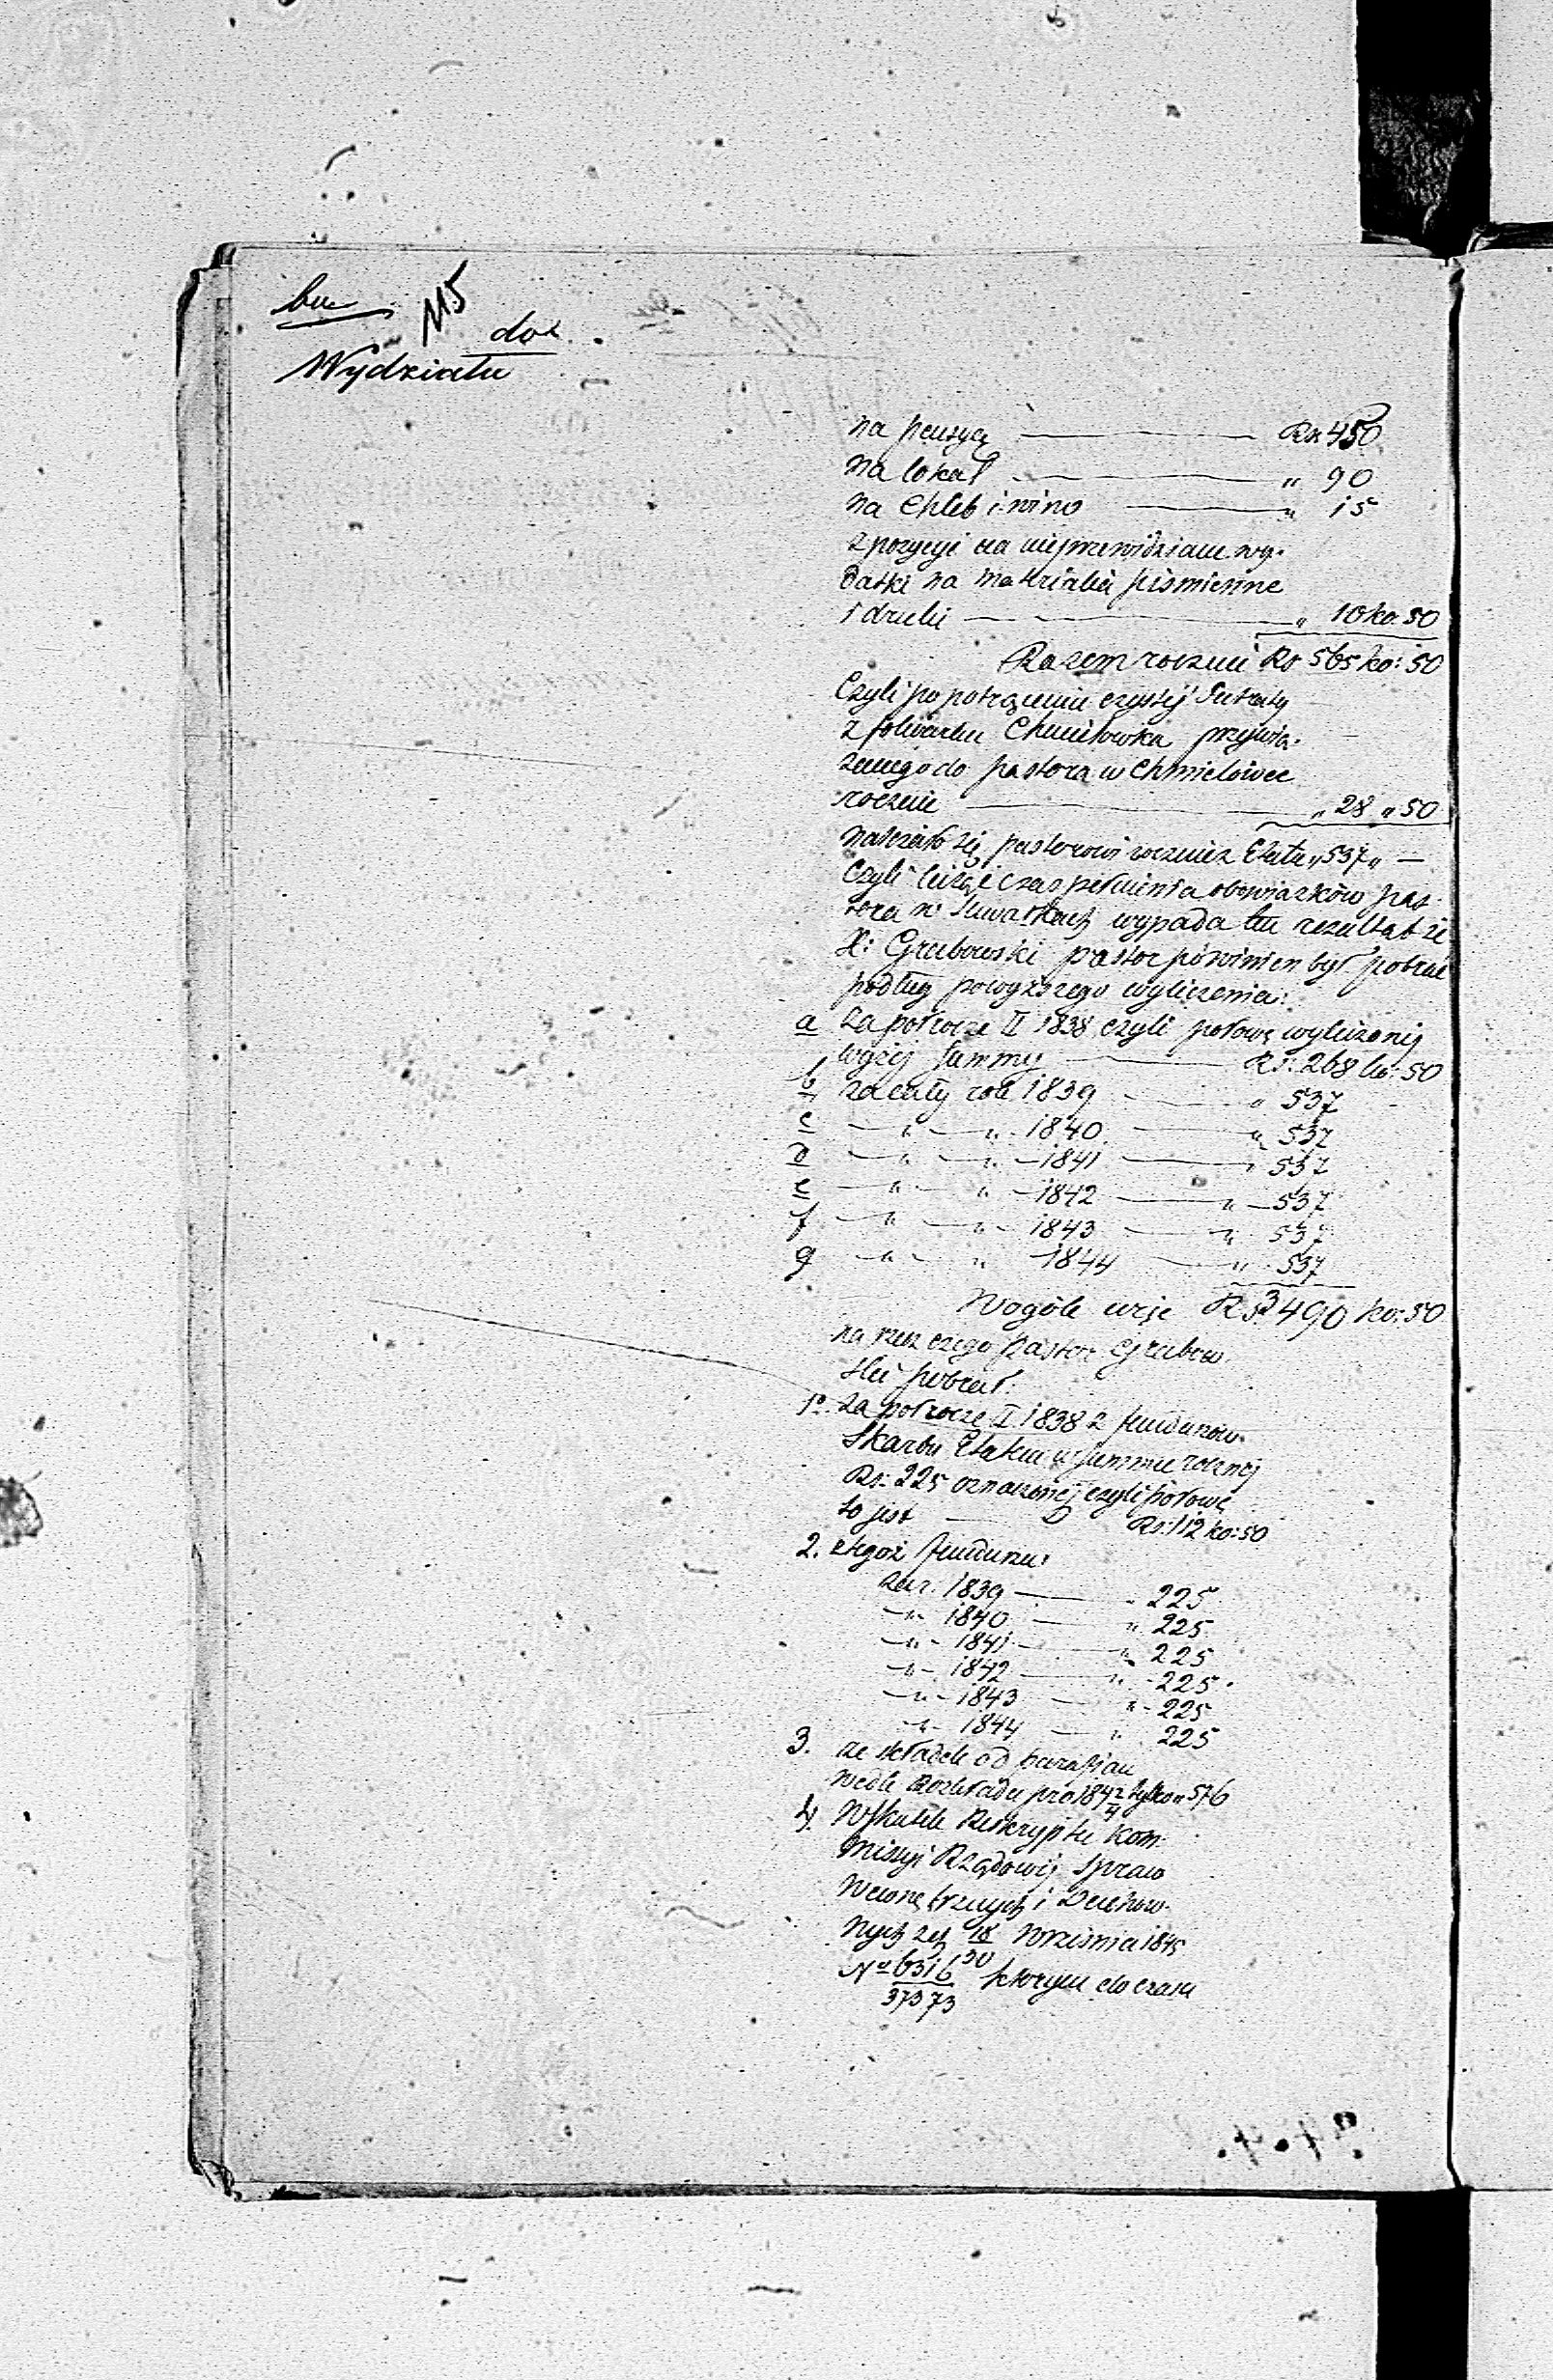 115
do
Wydziału
na pensyą — Rs 450
na lokal — „ 90
na Chleb i wino — „ 15
z pozycyi na nieprzewidziane wy-
datki na materiały piśmienne
i druki — „ 10 ko. 50
Razem rocznie Rs 565 ko: 50
Czyli po potrąceniu czystej Intraty
z folwarku Chmielówka przywią-
zanego do pastora w Chmielówce
rocznie — „ 28 „ 50
należało się pastorowi rocznie z Etatu „ 537 „ —
Czyli licząc czas pełnienia obowiązków pas-
tora w Suwałkach wypada tu rezultat że
X: Grabowski pastor powinien był pobrać
podług powyższego wyliczenia:
a za półrocze II 1838 czyli połowę wyliczonej
wyżej Summy — Rs: 268 ko: 50
b za cały rok 1839 — „ 537
c — „ — „ 1840 — „ 537
d — „ — „ — 1841 — „ 537
e — „ — „ — 1842 — „ — 537
f — „ — „ — 1843 — „ 537
g — „ — „ — 1844 — „ 537
Wogóle więc Rs. 3490 ko: 50
na rzecz czego Pastor Grabow-
ski pobrał:
1o. za półrocze II 1838 z funduszów
Skarbu Etatem w Summie rocznej
Rs: 225 oznaczonej czyli połowę
to jest — Rs: 112 ko: 50
2. z tegoż funduszu:
za r. 1839 — „ 225
— „ 1840 — „ 225
— „ — 1841 — „ 225
— „ — 1842 — „ — 225
— „ — 1843 — „ — 225
— „ — 1844 — „ 225
3. ze składek od parafian
wedle Rozkładu pro 1842/4 tylko „ 576
4. W skutek Reskryptu Kom-
missyi Rządowej Spraw
Wewnętrznych i Duchow-
nych z d. 18/30 Września 1845
No 6316/37373 którym do czasu